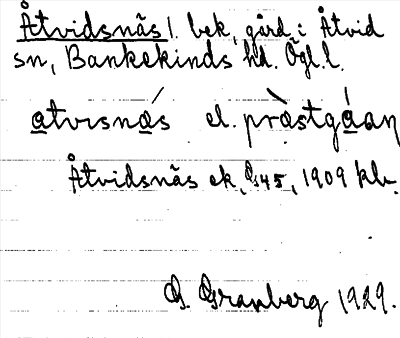 Åtvidsnäs l. bek, gård i Åtvid
sn, Bankekinds hd. Ögl. l.
atvısnǽs el. prä̀stgáan
Åtvidsnäs ek, G45, 1909 kb.
G. Granberg 1929.